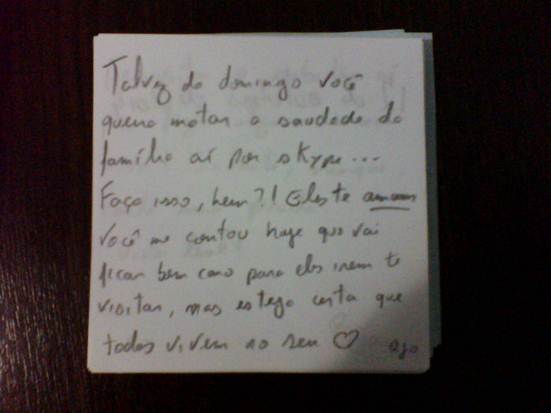 Talvez do domingo você
queira matar a saudade da
família aí por skype...
Faça isso, hein?! Eles te amam
Você me contou hoje que vai
ficar bem caro para eles irem te
visitar, mas estejo certa que
todos vivem no seu ♡